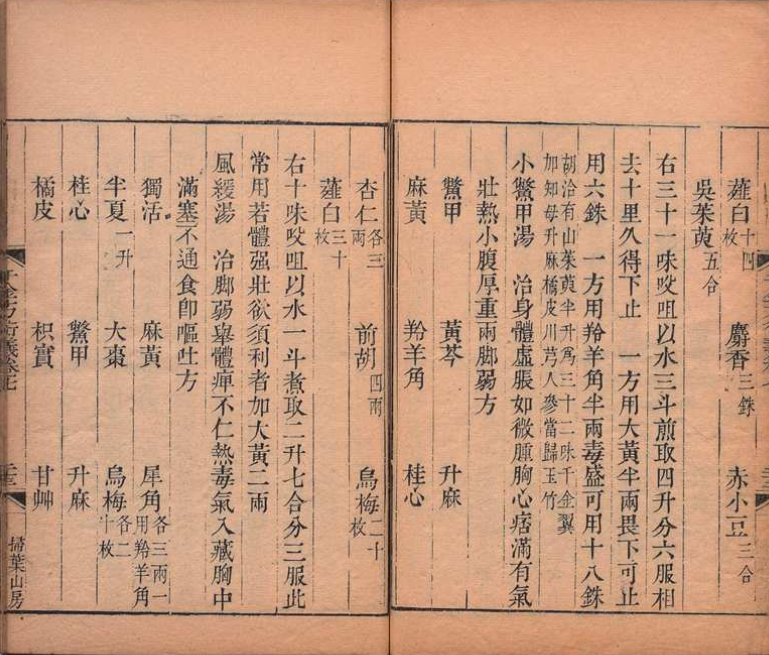 薤白十四枚 麝香三銖 赤小豆三合
吳茱萸五合
右三十一味㕮咀以水三斗煎取四升分六服相
去十里久得下止 一方用大黃半兩畏下可止
用六銖 一方用羚羊角半兩毒盛可用十八銖
胡洽有山茱萸半升爲三十二味千金翼
加知母升麻橘皮川芎人參當歸玉竹
小鱉甲湯 治身體虛脹如微腫胸心痞滿有氣
壯熱小腹厚重兩脚弱方
鱉甲 黃芩 升麻
麻黃 羚羊角 桂心
杏仁各三兩 前胡四兩 烏梅二十枚
薤白三十枚
右十味㕮咀以水一斗煮取二升七合分三服此
常用若體强壯欲須利者加大黃二兩
風緩湯 治脚弱舉體痺不仁熱毒氣入藏胸中
滿塞不通食卽嘔吐方
獨活 麻黃 犀角各三兩一用羚羊角
半夏一升 大棗 烏梅各二十枚
桂心 鱉甲 升麻
橘皮 枳實 甘艸
千金方衍義卷七
掃葉山房